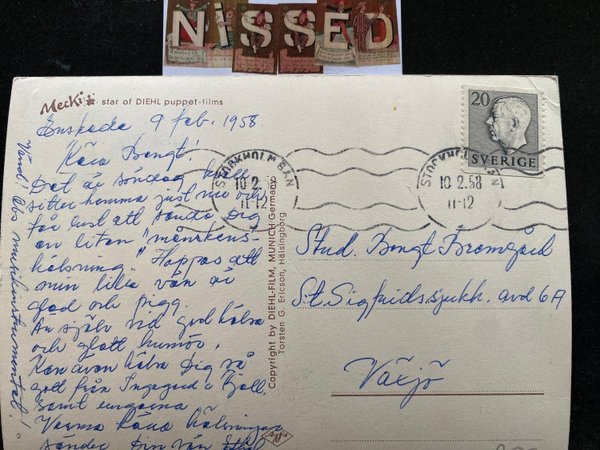 NiSSED
Mecki star of DIEHL puppet-films
Enskede 9 feb. 1958
Kära Bengt!
Det är söndag kväll
sitter hemma just nu och
får lust att sända Dig
en liten "månskens-
hälsning." Hoppas att
min lilla vän är
glad och pigg.
Är själv vid god hälsa
och glatt humör.
Kan även hälsa Dig så
gott från Ingegerd o Kjell,
samt ungarna
Varma kära hälsningar
sänder Din vän
Vänd! Obs
2
Copyright by DIEHL-FILM, MUNICH Germany
Torsten G. Ericson, Hälsingborg
Agfa
20
SVERIGE
STOCKHOLM BAN
10.2.58
11-12
STOCKHOLM BAN
10.2.58
11-12
Stud. Bengt Bromgård
St. Sigfrids sjukh. avd 6A
Växjö